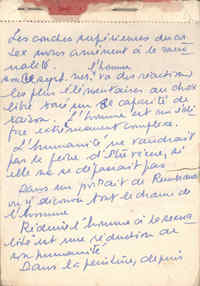 Les couches supérieures du co
tex nous amènent à le racio
nalité. l'homme
les plus élémentaires au choix
libre lorsé un capacité de
raison. L'homme est un être
très extrêmement complexe.
L'humanité ne vaudrait
pas la peine d'être vécue, si
elle ne se dépassait pas.
Dans un portrait de Rembrandt
on y découvre tout le drame de
l'homme
Réduire l'homme à le sexua
lité est une réduction de
son humanité
Dans la peinture, depuis